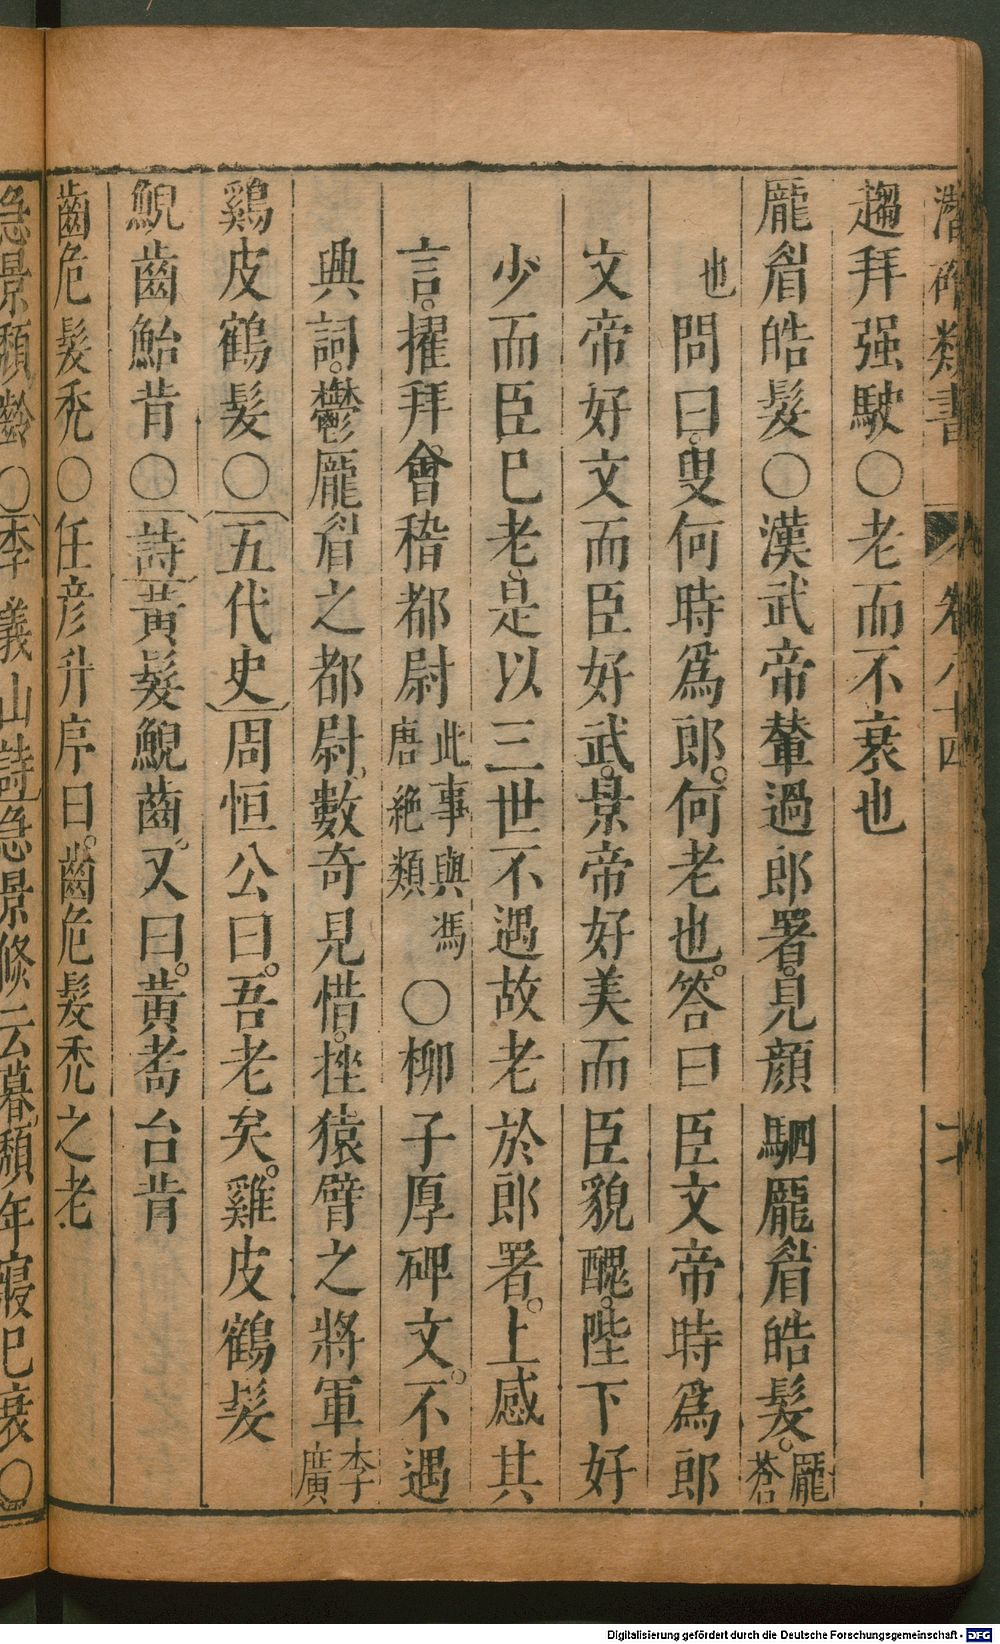 潛確類書　卷八十四　十
趨拜强駛○老而不衰也
龐眉皓髮○漢武帝輦過郎署。見顔駟龐眉皓髮。龐蒼
也問曰。叟何時爲郎。何老也。答曰臣文帝時爲郎
文帝好文而臣好武。景帝好美而臣貌醜。陛下好
少而臣巳老。是以三世不遇故老於郎署。上感其
言。擢拜會稽都尉此事與馮唐絶類○柳子厚碑文。不遇
興詞。鬱龐眉之都尉。數奇見惜。挫猿臂之將軍李廣
鷄皮鶴髮○五代史周恒公曰。吾老矣。雞皮鶴髮
鯢齒鮐背○詩黃髮鯢齒。又曰。黃耇台背
齒危髮秃○任彦升序曰。齒危髮秃之老
急景頽齡○李義山詩急景倏云暮頽年寖已衰○
Digitalisierung gefördert durch die Deutsche Forschungsgemeinschaft - DFG